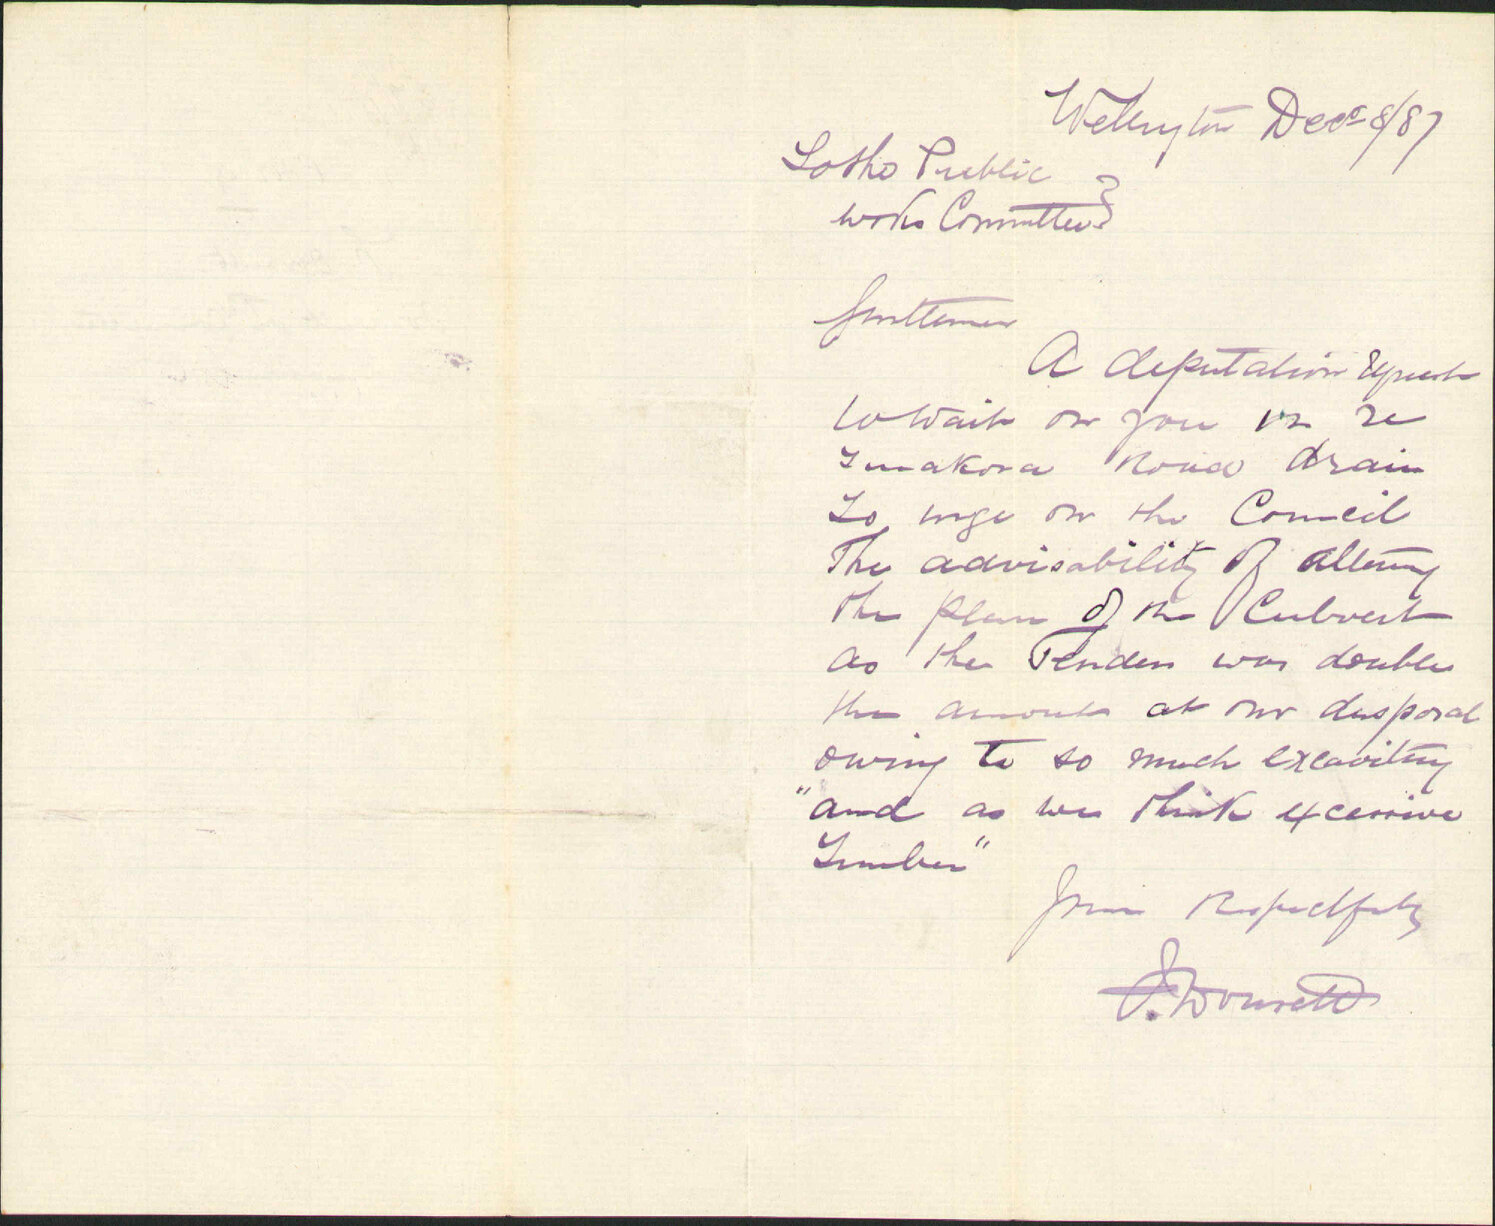 Wellington Decr 8/87
To the Public
Works Committee
Gentlemen
A deputation
to wait on you in re
Tinakora Road drain
To urge on the Council
The advisability of altering
the plan of the Culvert
as the Tenders was double
the amount at our disposal
owing to so much excavating
"and as we think excessive
Timber"
Yours Respectfully
J. Dowsett